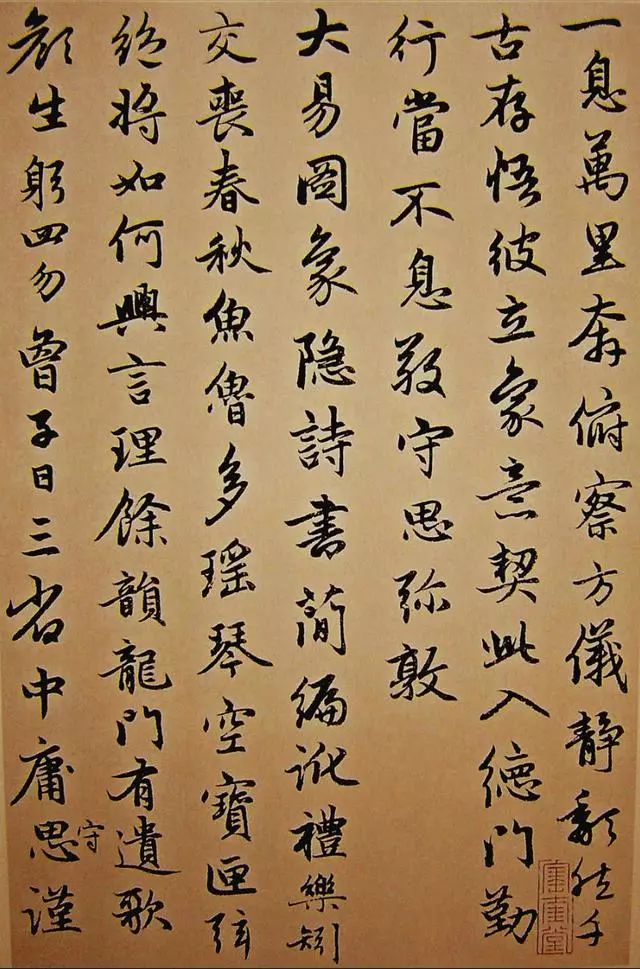 一息萬里奔俯察方儀靜頽然千
古存悟彼立象意契此入德門勤
行當不息敬守思弥敦
大易圖象隐詩書簡編訛禮樂矧
交喪春秋魚魯多瑶琴空寶匣弦
絕將如何興言理餘韻龍門有遺歌
顏生躬四勿曾子日三省中庸思守謹